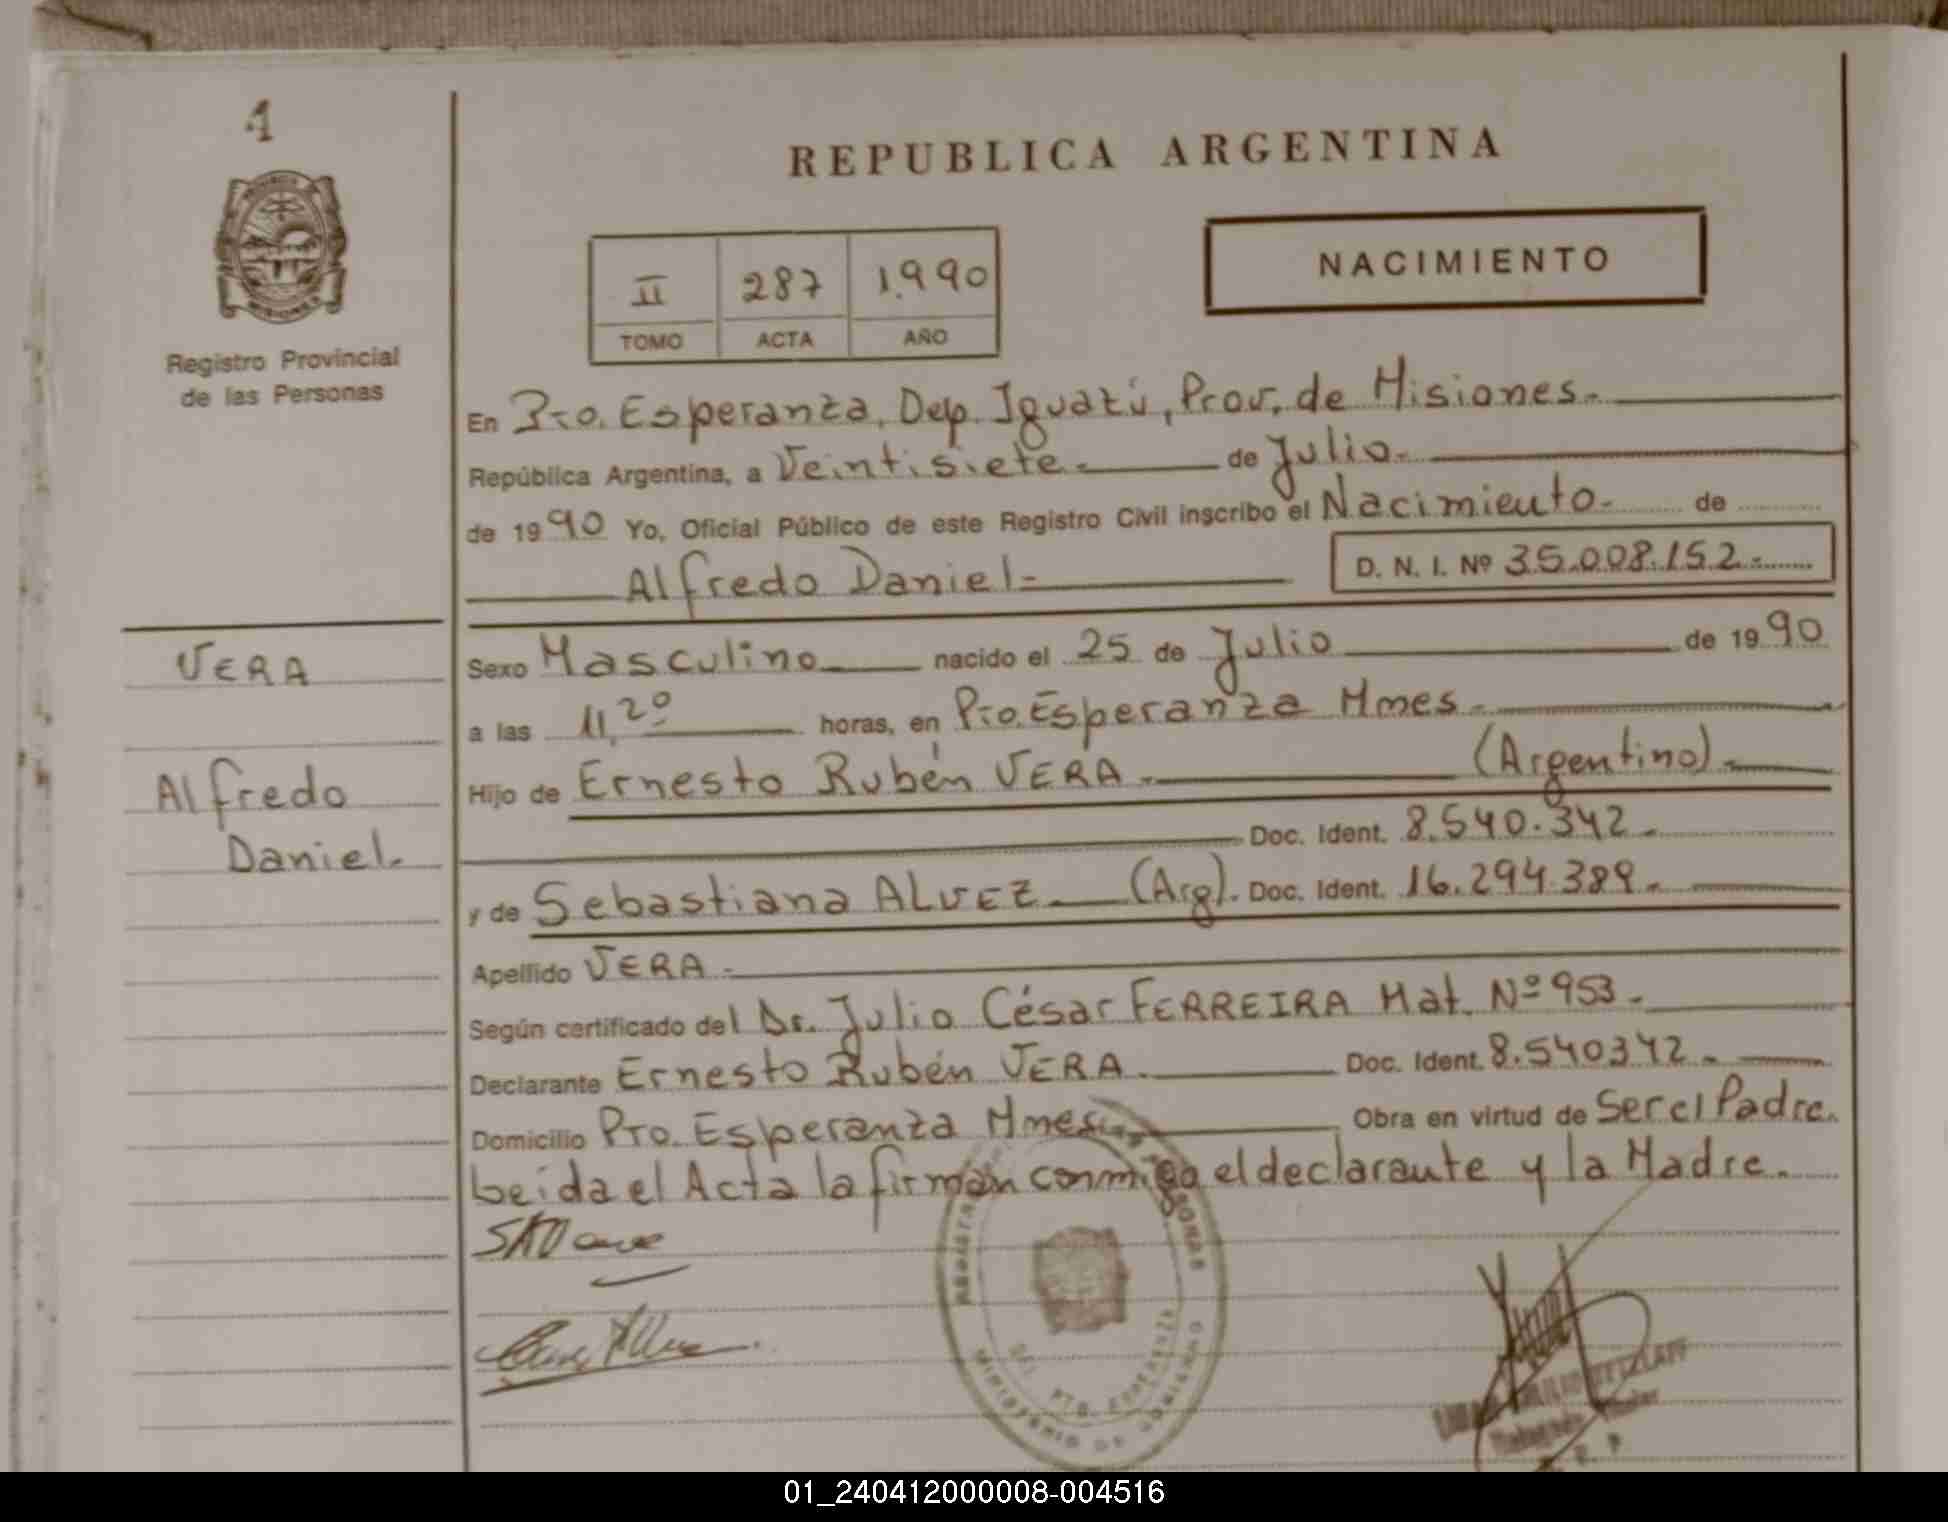 1
Registro Provincial
de las Personas
VERA
Alfredo
Daniel.
REPUBLICA ARGENTINA
II 287 1.990
TOMO ACTA AÑO
NACIMIENTO
En Pto. Esperanza, Dep. Iguazú, Prov. de Misiones.
República Argentina, a Veintisiete. de Julio.
de 1990 Yo, Oficial Público de este Registro Civil inscribo el Nacimiento. de
Alfredo Daniel. D. N. I. Nº 35.008.152.
Sexo Masculino nacido el 25 de Julio de 1990
a las 11,20 horas, en Pto. Esperanza Mnes.
Hijo de Ernesto Rubén VERA. (Argentino).
Doc. Ident. 8.540.342.
y de Sebastiana ALVEZ (Arg). Doc. Ident. 16.294.389.
Apellido VERA.
Según certificado del Dr. Julio César FERREIRA Mat. Nº 953.
Declarante Ernesto Rubén VERA. Doc. Ident. 8.540342.
Domicilio Pto. Esperanza Mnes. Obra en virtud de Ser el Padre.
Leida el Acta la firman conmigo el declarante y la Madre.
PTO. ESPERANZA
MINISTERIO DE GOBIERNO
01_240412000008-004516